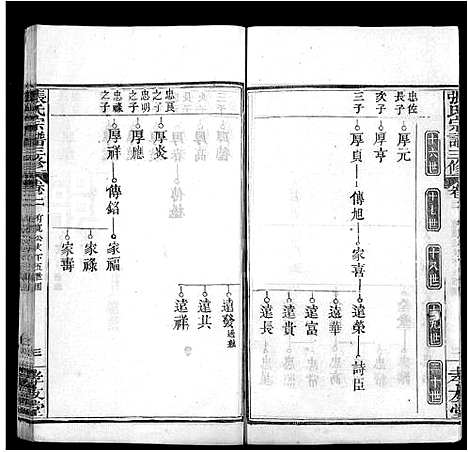 張氏宗譜三修
卷二
孝友堂
十六世
十七世
十八世
十九世
二十世
忠佐長子
厚元
次子
厚亨
三子
厚貞
傳旭
家喜
遠榮
詩臣
遠華
遠富
遠貴
遠長
遠發
遠共
遠祥
忠良之子
厚炎
忠明之子
厚應
忠職之子
厚祥
傳銘
家福
家祿
家壽
張氏宗譜三修
卷二
三
孝友堂